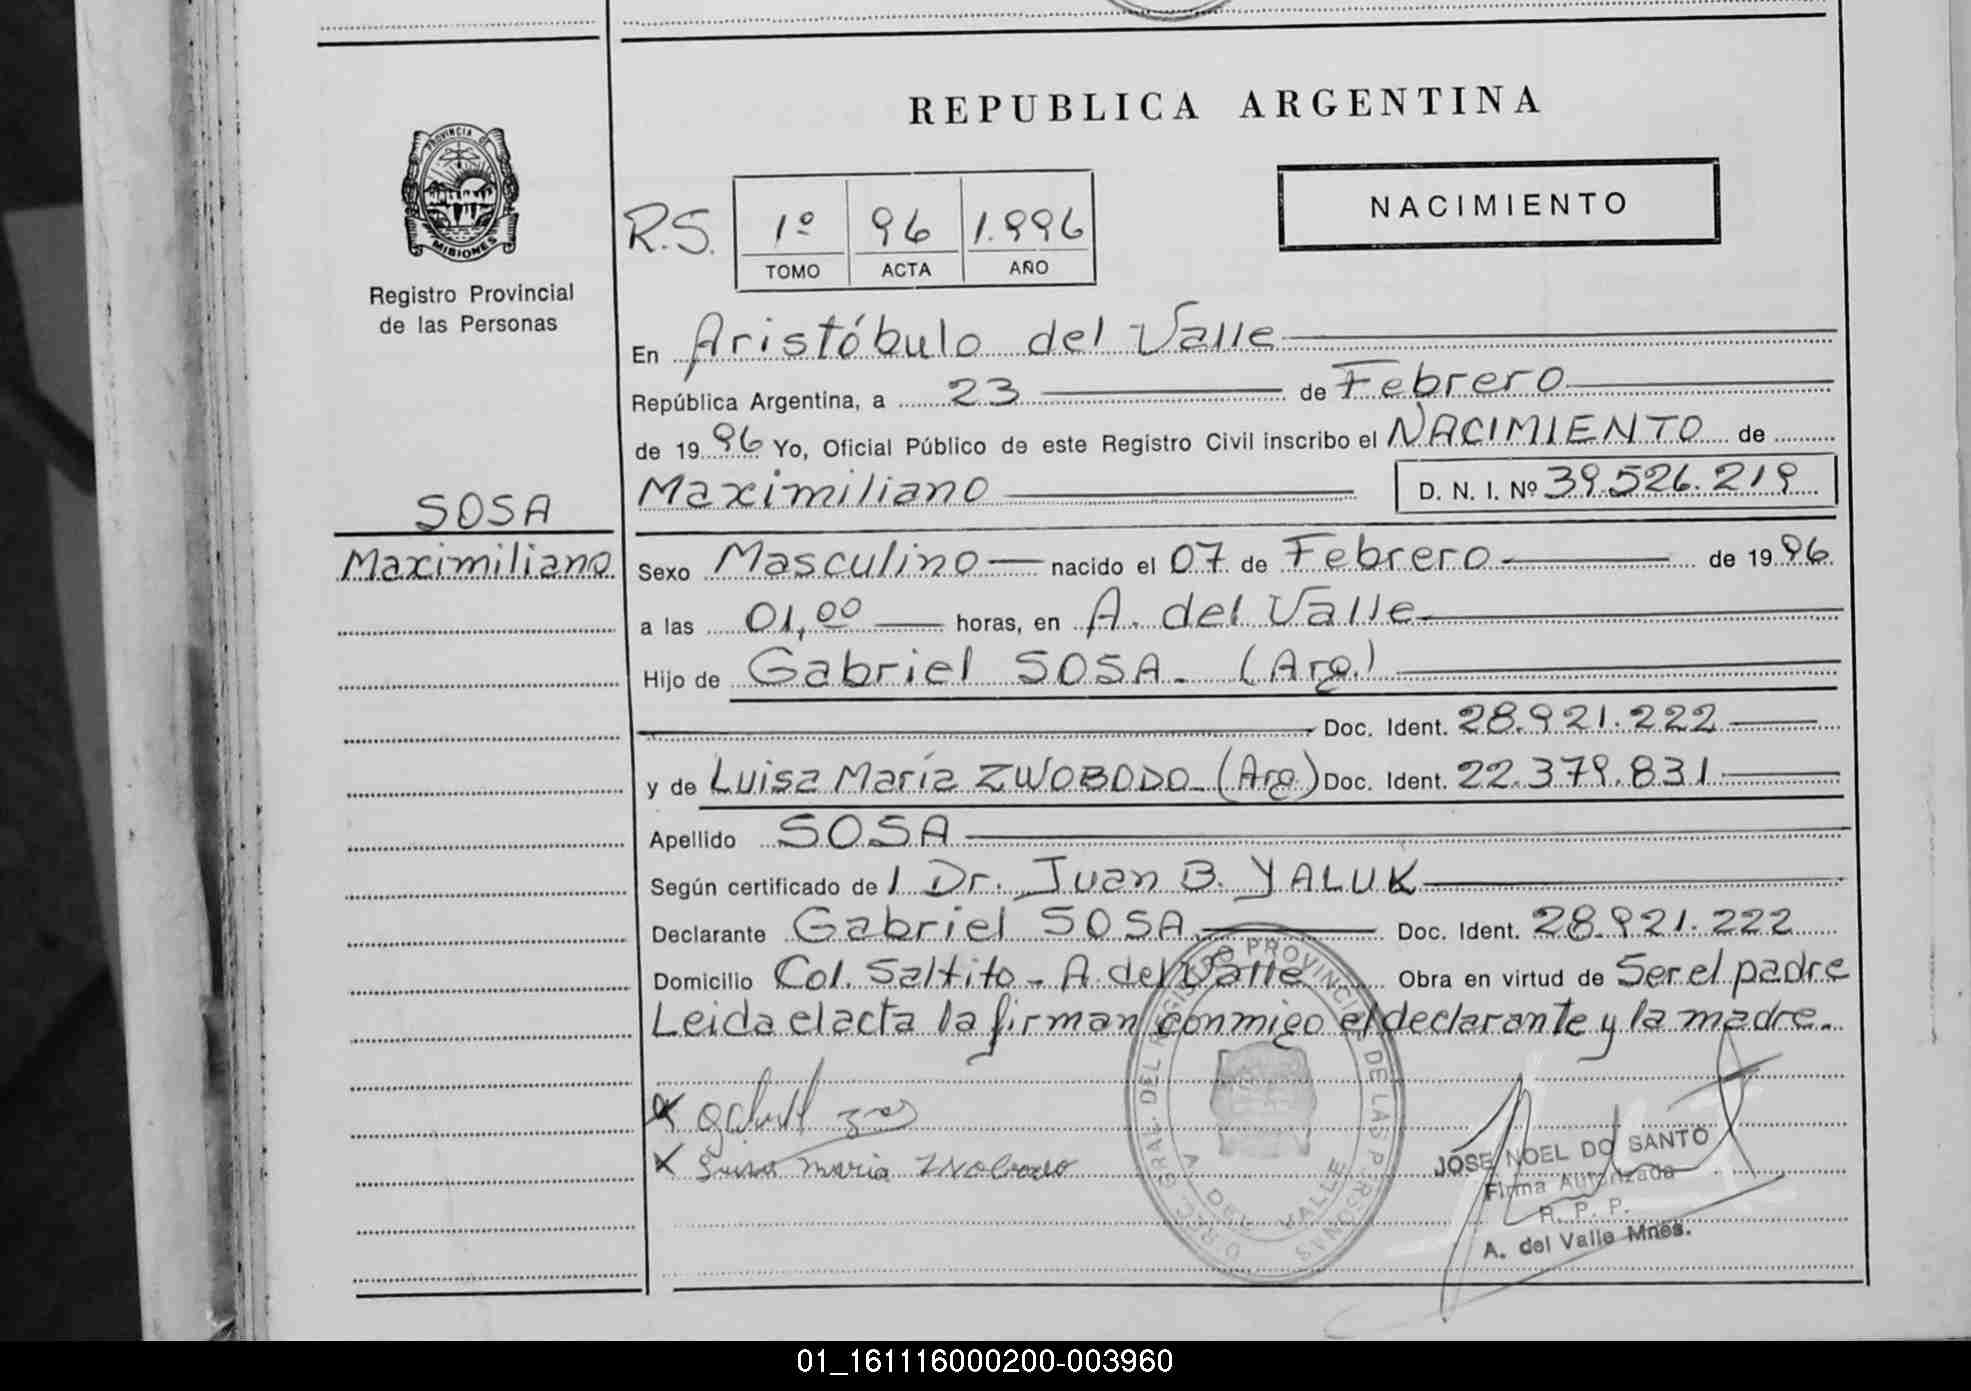 REPUBLICA ARGENTINA
PROVINCIA DE
MISIONES
Registro Provincial
de las Personas
NACIMIENTO
R.S. 1º 96 1.996
TOMO ACTA AÑO
En Aristóbulo del Valle
República Argentina, a 23 de Febrero
de 1996 Yo, Oficial Público de este Registro Civil inscribo el NACIMIENTO de
Maximiliano D. N. I. Nº 39.526.219
SOSA
Maximiliano
Sexo Masculino nacido el 07 de Febrero de 1996.
a las 01,00 horas, en A. del Valle
Hijo de Gabriel SOSA. (Arg.)
Doc. Ident. 28.921.222
y de Luisa María ZWOBODO (Arg.) Doc. Ident. 22.379.831
Apellido SOSA
Según certificado de l Dr. Juan B. YALUK
Declarante Gabriel SOSA Doc. Ident. 28.921.222
Domicilio Col. Saltito - A. del Valle Obra en virtud de Ser el padre
Leida el acta la firman conmigo el declarante y la madre.
Luisa maria Zwobodo
DIREC. GRAL. DEL REGISTRO PROVINCIAL DE LAS PERSONAS
A. DEL VALLE
JOSE NOEL DO SANTO
Firma Autorizada
R. P. P.
A. del Valle Mnes.
01_161116000200-003960